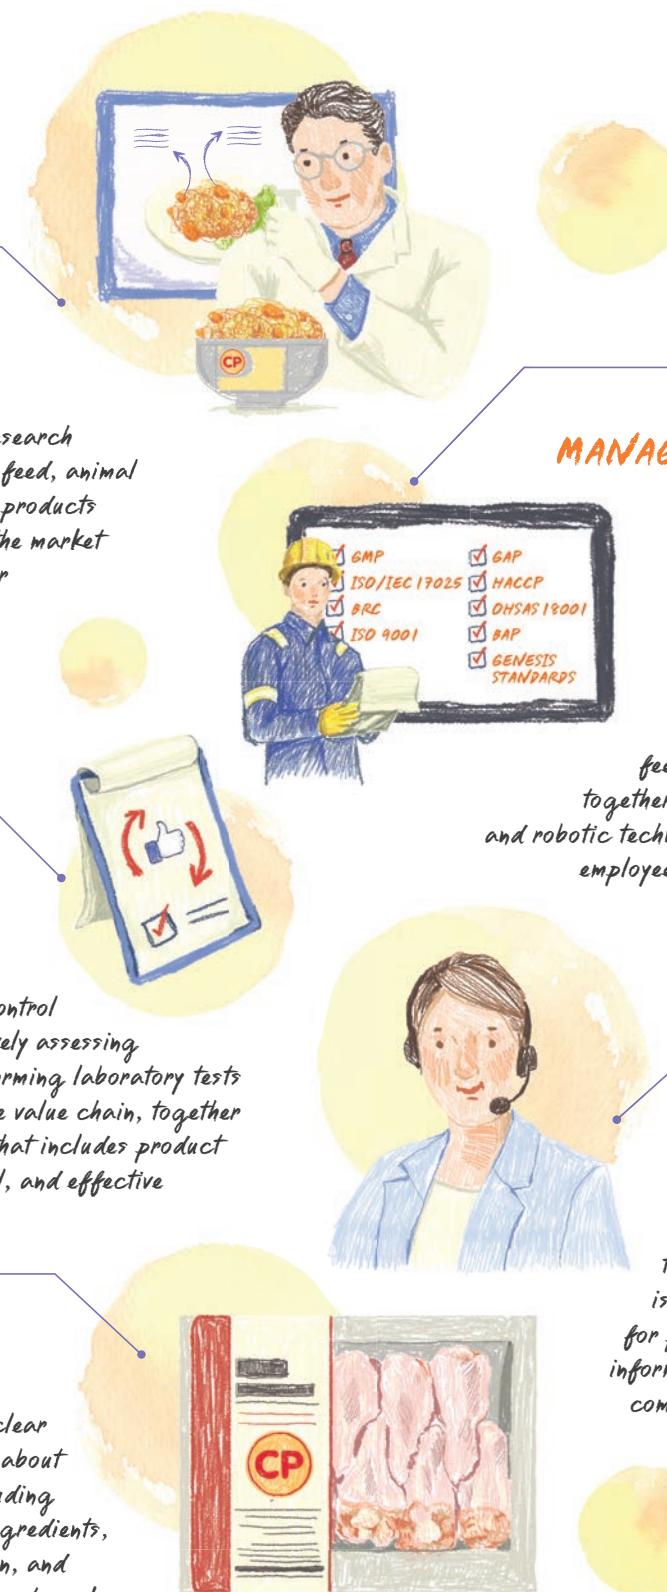 CP
search
feed, animal
products
the market
r
MANAG
GMP
ISO/IEC 17025
BRC
ISO 9001
GAP
HACCP
OHSAS 18001
BAP
GENESIS
STANDARDS
fee
together
and robotic tech
employee
ontrol
ely assessing
rming laboratory tests
e value chain, together
hat includes product
l, and effective
is
for
inform
com
CP
clear
about
ding
gredients,
n, and